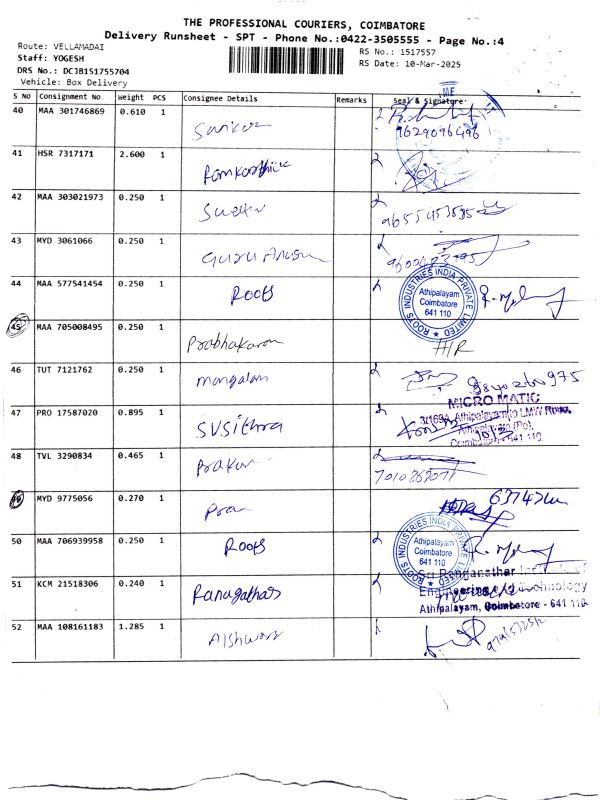 THE PROFESSIONAL COURIERS, COIMBATORE
Delivery Runsheet - SPT - Phone No.:0422-3505555 - Page No.:4
Route: VELLAMADAI
RS No.: 1517557
Staff: YOGESH
RS Date: 10-Mar-2025
DRS No.: DCJB151755704
Vehicle: Box Delivery
S No Consignment No Weight PCS Consignee Details Remarks Seal & Signature
40 MAA 301746869 0.610 1
9629096496
41 HSR 7317171 2.600 1 Ramkarthick
42 MAA 303021973 0.250 1
43 MYD 3061066 0.250 1 Guru
44 MAA 577541454 0.250 1 Roots
ROOTS INDUSTRIES INDIA PRIVATE LIMITED
Athipalayam
Coimbatore
641 110
45 MAA 705008495 0.250 1 Prabhakaran HR
46 TUT 7121762 0.250 1 mangalam
MICRO MATIC
47 PRO 17587020 0.895 1
3/169A, Athipalayam to LMW Road,
Athipalayam (Po),
Coimbatore - 641 110
48 TVL 3290834 0.465 1
49 MYD 9775056 0.270 1
50 MAA 706939958 0.250 1 Roots
ROOTS INDUSTRIES INDIA PRIVATE LIMITED
Athipalayam
Coimbatore
641 110
Sri Ranganathar Institute of
51 KCM 21518306 0.240 1
Engineering & Technology
Athipalayam, Coimbatore - 641 110
52 MAA 108161183 1.285 1